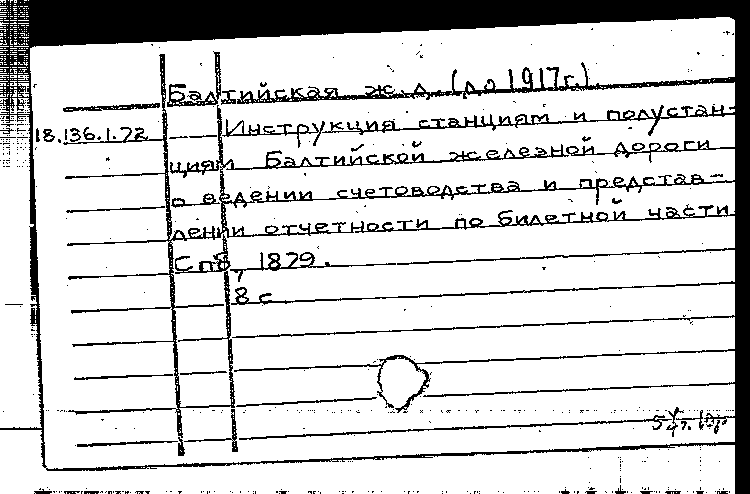 Балтийская ж. д. (до 1917г.)
18.136.1.72 Инструкция станциям и полустан-
циям Балтийской железной дороги
о ведении счетоводства и представ-
лении отчетности по билетной части
Спб, 1879.
8 с